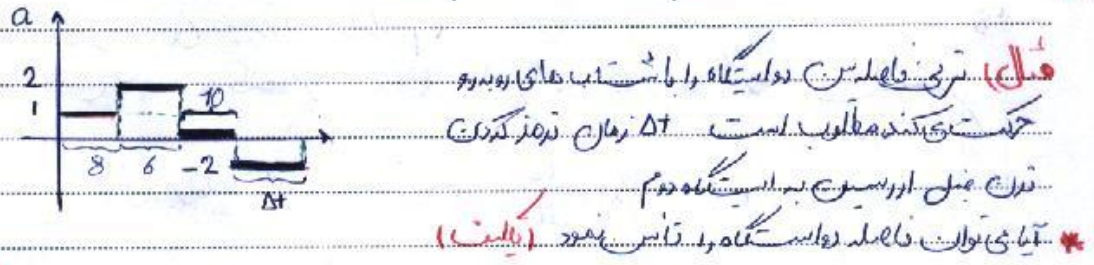 a
2
1
10
8 6 -2
Δt
مثال) ترنی فاصله بین دو ایستگاه را با شتاب های روبرو
حرکت می کند مطلوب است Δt زمان ترمز کردن
ترن قبل از رسیدن به ایستگاه دوم
* آیا می توان فاصله دو ایستگاه را تأسی نمود